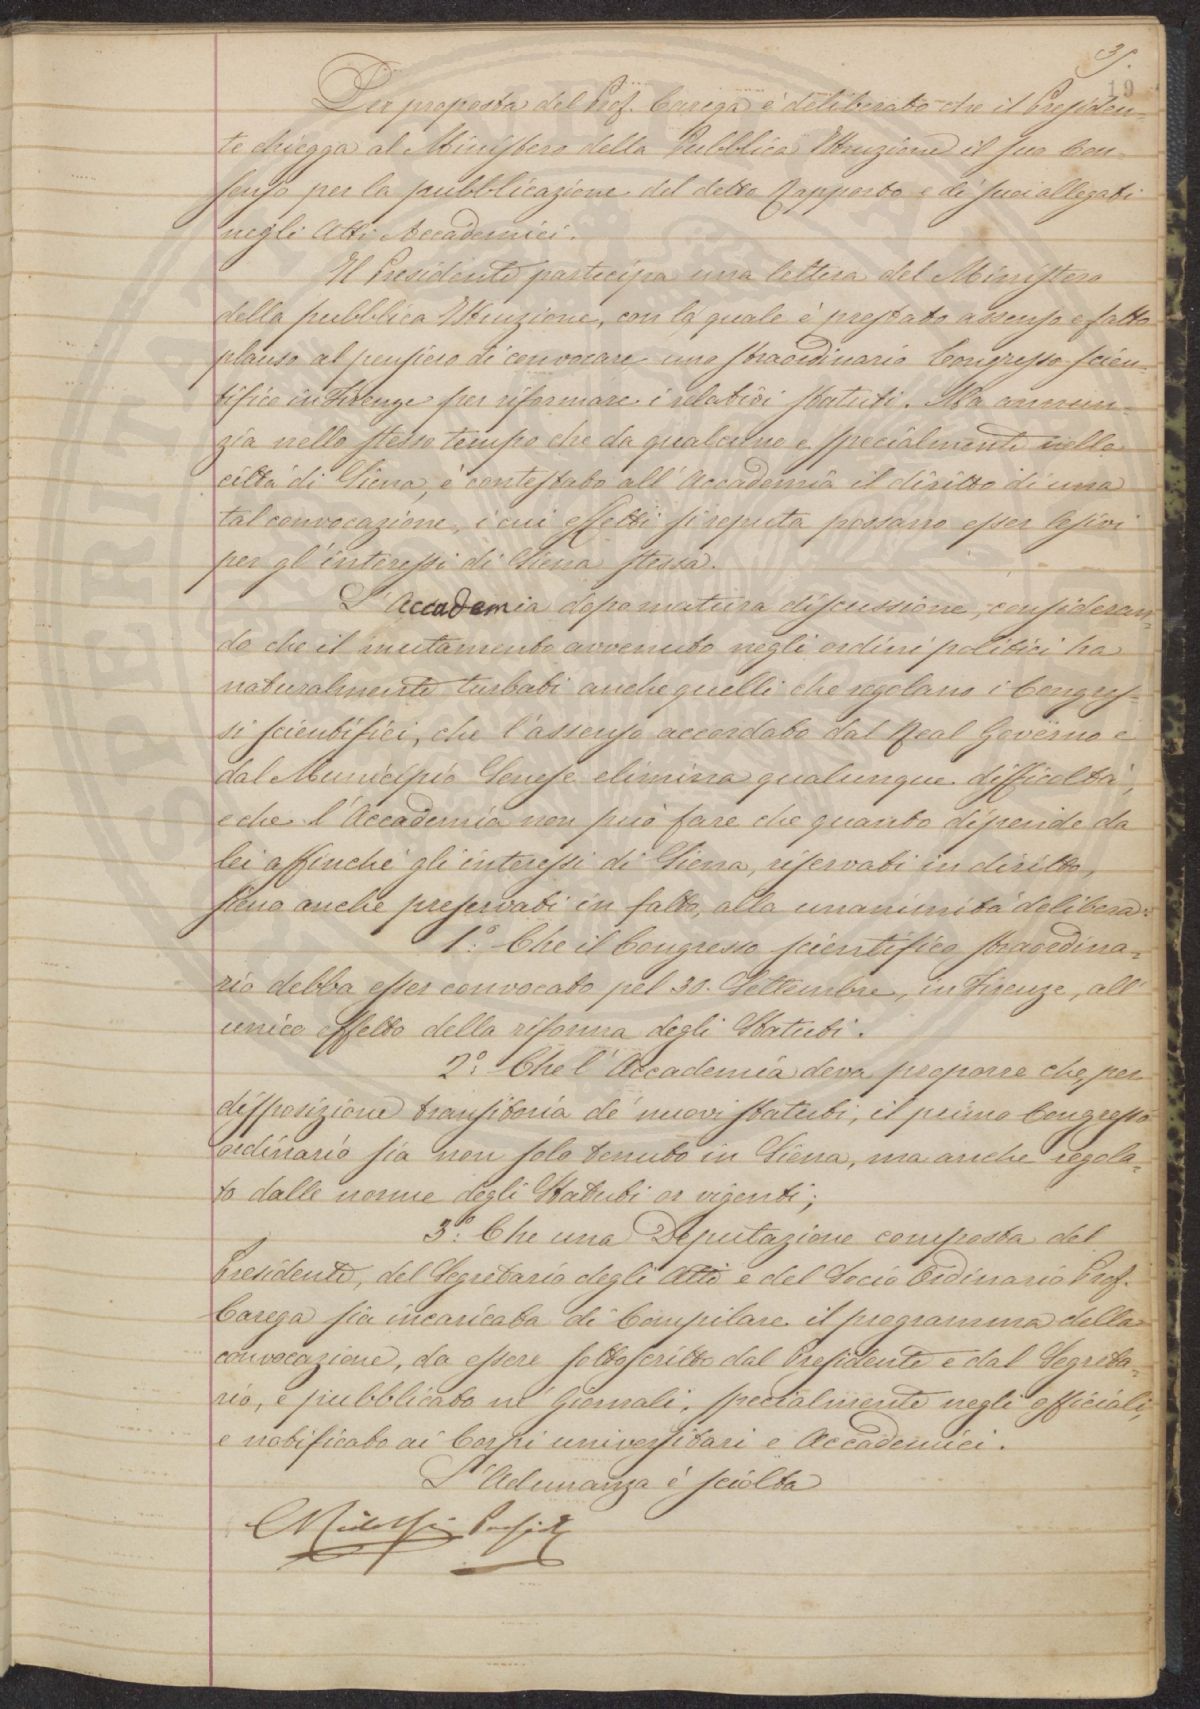 3
19
Per proposta del Prof. Carega è deliberato che il Presiden-
te chiegga al Ministero della Pubblica Istruzione il suo Con-
senso per la pubblicazione del detto Rapporto e de' suoi allegati
negli Atti Accademici.
Il Presidente partecipa una lettera del Ministero
della pubblica Istruzione, con la quale è prestato assenso e fatto
plauso al pensiero di convocare uno straordinario Congresso scien-
tifico in Firenze per riformare i relativi statuti. Ma annun-
zia nello stesso tempo che da qualcuno e specialmente nella
città di Siena, è contestato all'Accademia il diritto di una
tal convocazione, i cui effetti si reputa possano esser lesivi
per gl'interessi di Siena stessa.
L'Accademia dopo matura discussione, consideran-
do che il mutamento avvenuto negli ordini politici ha
naturalmente turbati anche quelli che regolano i Congres-
si scientifici, che l'assenso accordato dal Real Governo e
dal Municipio Senese elimina qualunque difficoltà,
e che l'Accademia non può fare che quanto dipende da
lei affinchè gli interessi di Siena, riservati in diritto,
sieno anche preservati in fatto, alla unanimità delibera:
1.° Che il Congresso scientifico straordina-
rio debba esser convocato pel 30. Settembre, in Firenze, all'
unico effetto della riforma degli Statuti.
2.° Che l'Accademia deva proporre che, per
disposizione transitoria de' nuovi statuti, il primo Congresso
ordinario sia non solo tenuto in Siena, ma anche regola-
to dalle norme degli Statuti or vigenti;
3.° Che una Deputazione composta del
Presidente, del Segretario degli Atti e del Socio Ordinario Prof.
Carega sia incaricata di Compilare il programma della
convocazione, da essere sottoscritto dal Presidente e dal Segreta-
rio, e pubblicato ne' Giornali, specialmente negli officiali,
e notificato ai Corpi universitari e Accademici.
L'Adunanza è sciolta
CRidolfi Presid.